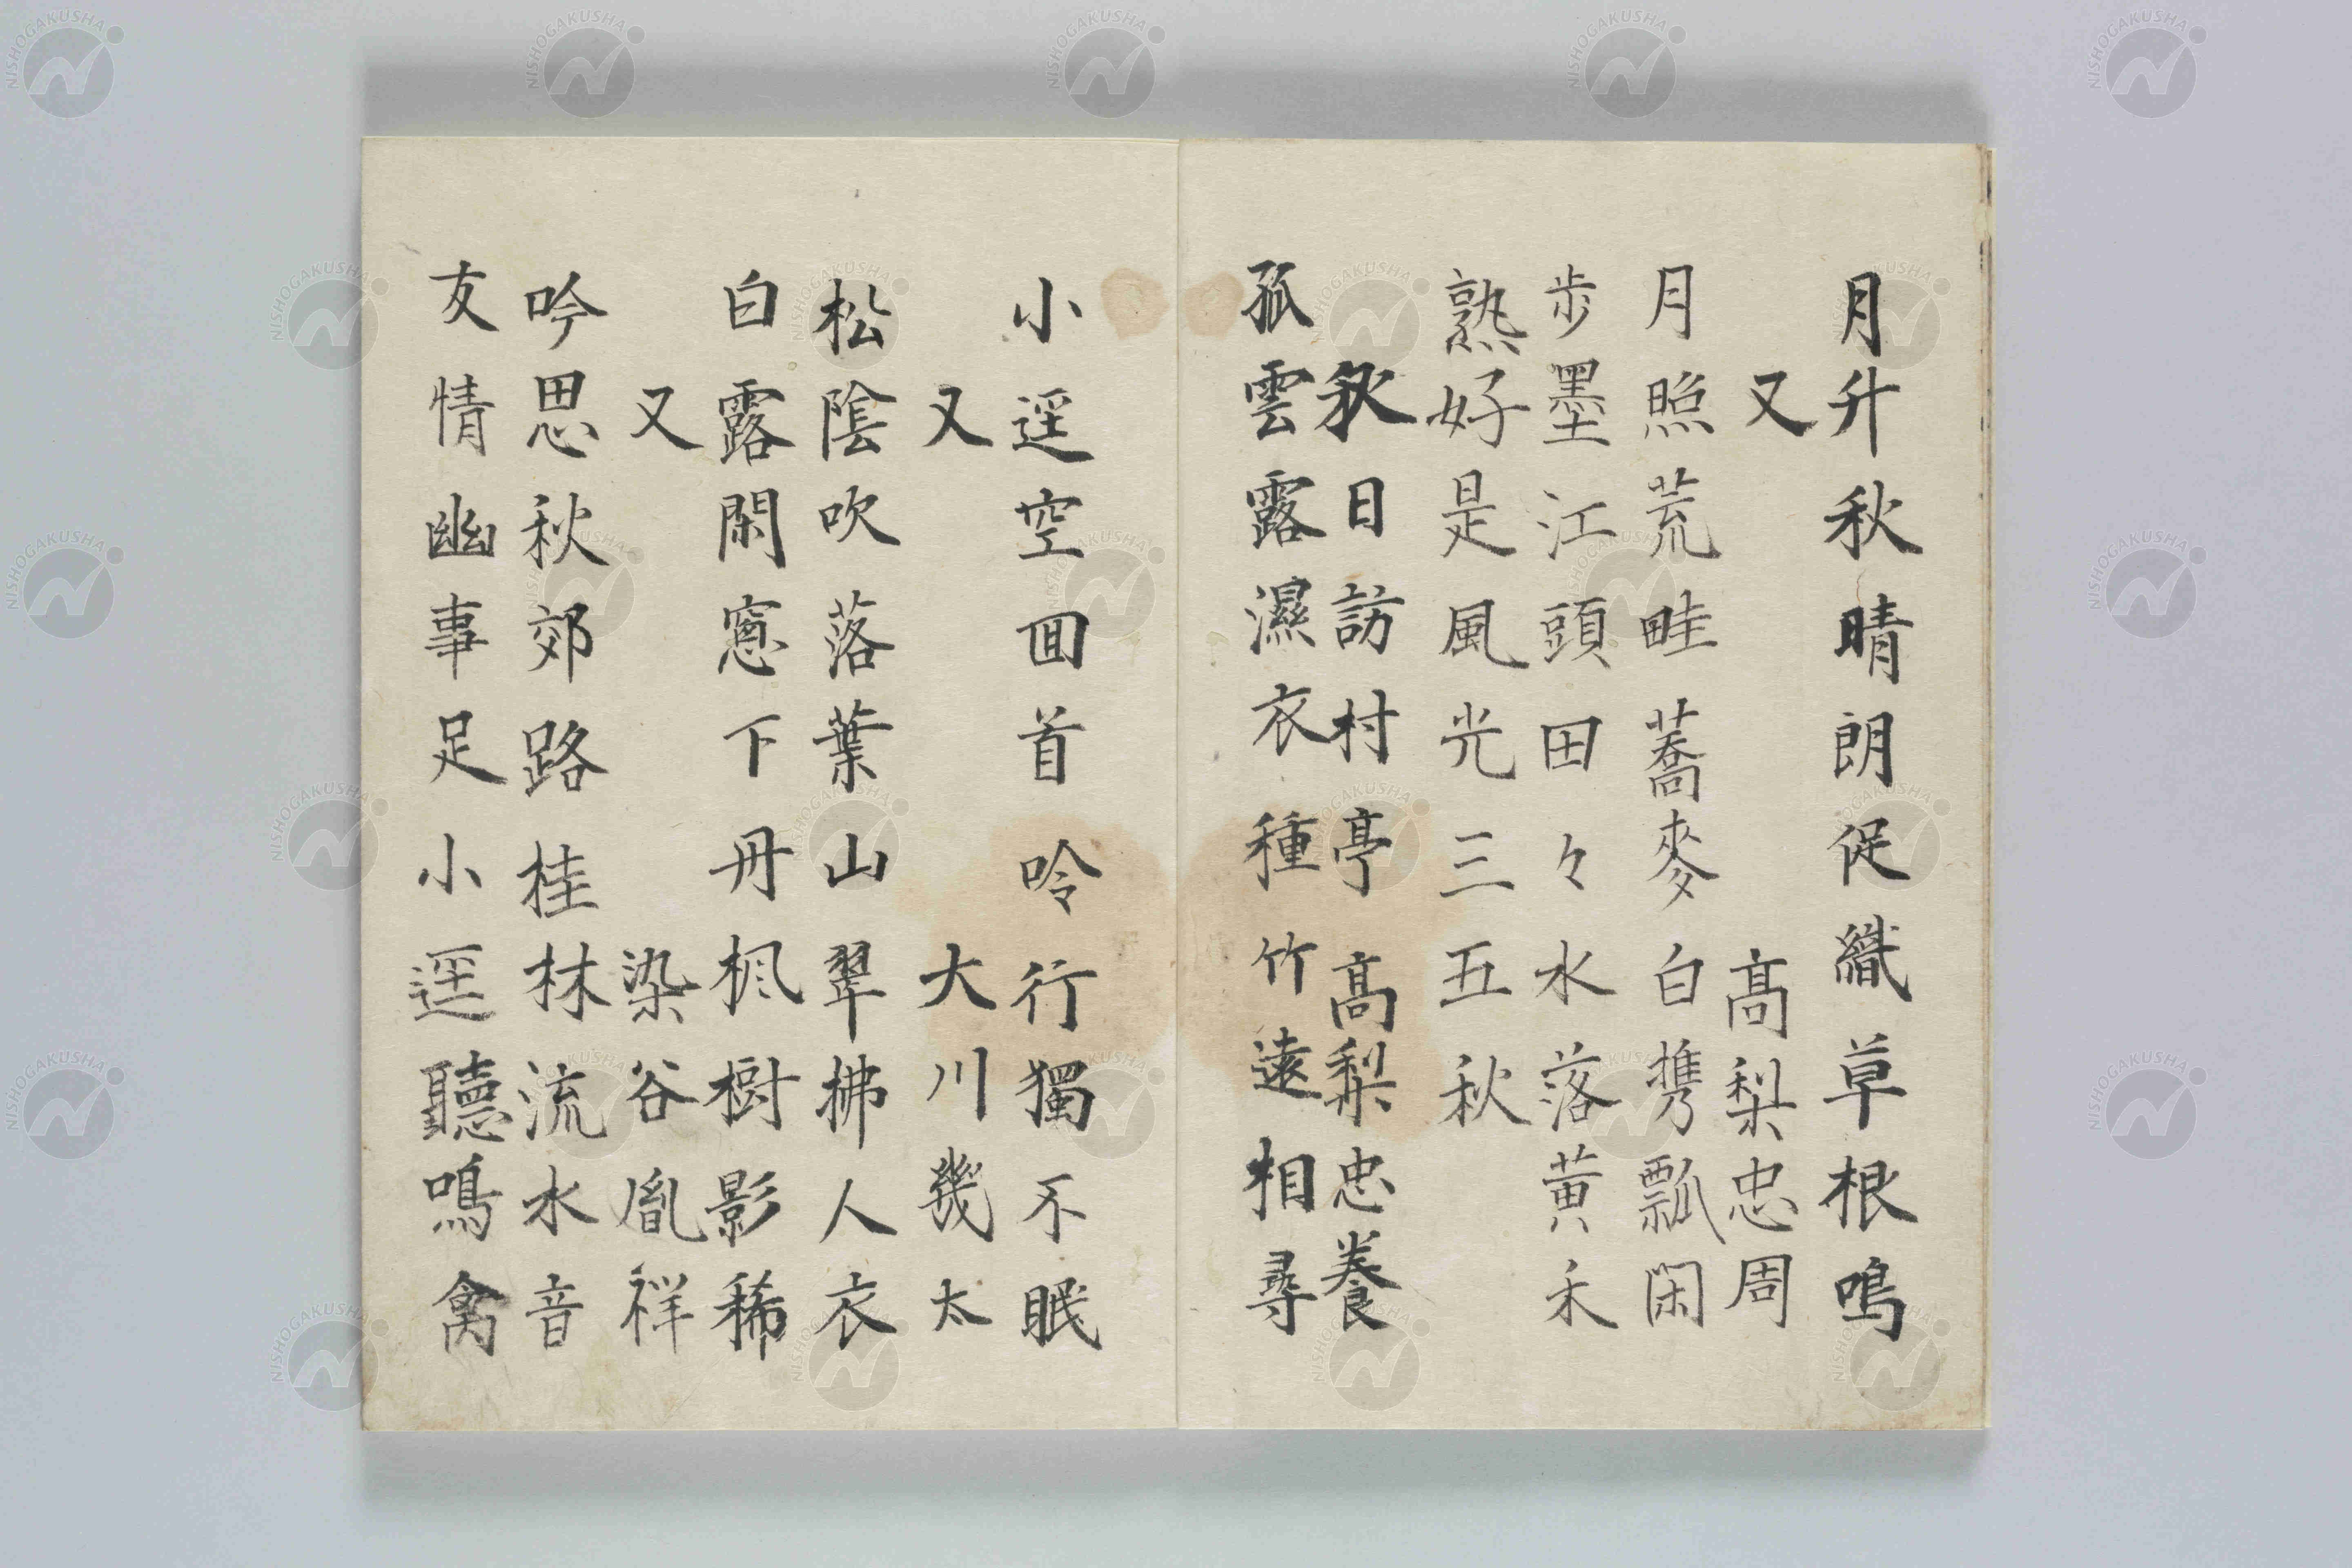 月升秋晴朗促織草根鳴
又 高梨忠周
月照荒畦蕎麥白携瓢閑
歩墨江頭田々水落黄禾
熟好是風光三五秋
秋日訪村亭 高梨忠養
孤雲露濕衣種竹遠相尋
小逕空囬首吟行獨不眠
又 大川幾太
松陰吹落葉山翠拂人衣
白露閑窓下丹楓樹影稀
又 染谷胤祥
吟思秋郊路桂林流水音
友情幽事足小逕聽鳴禽
NISHOGAKUSHA